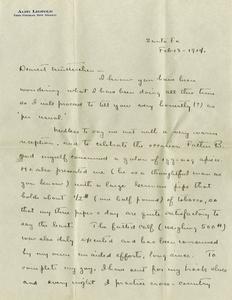 ALDO LEOPOLD
Santa Fe
Feb. 13 - 1914.
Dearest
I know you have been
wondering what I have been doing all this time
so I will proceed to tell you very honestly (!?) as
"per usual."
Needless to say we met with a very warm
reception, and to celebrate the occasion Father B.
and myself consumed a gallon of egg-nog apiece.
He also presented me (he is a thoughtful man as
you know) with a large German pipe that
holds about 1/2# (one half pound) of tobacco, so
that my three pipes a day are quite satisfactory to
say the least. The fatted calf (weighing 500#)
was also duly executed and has been consumed
by my own unaided efforts, long since. To
complete my joy, I have sent for my track shoes
and every night I practice cross-country